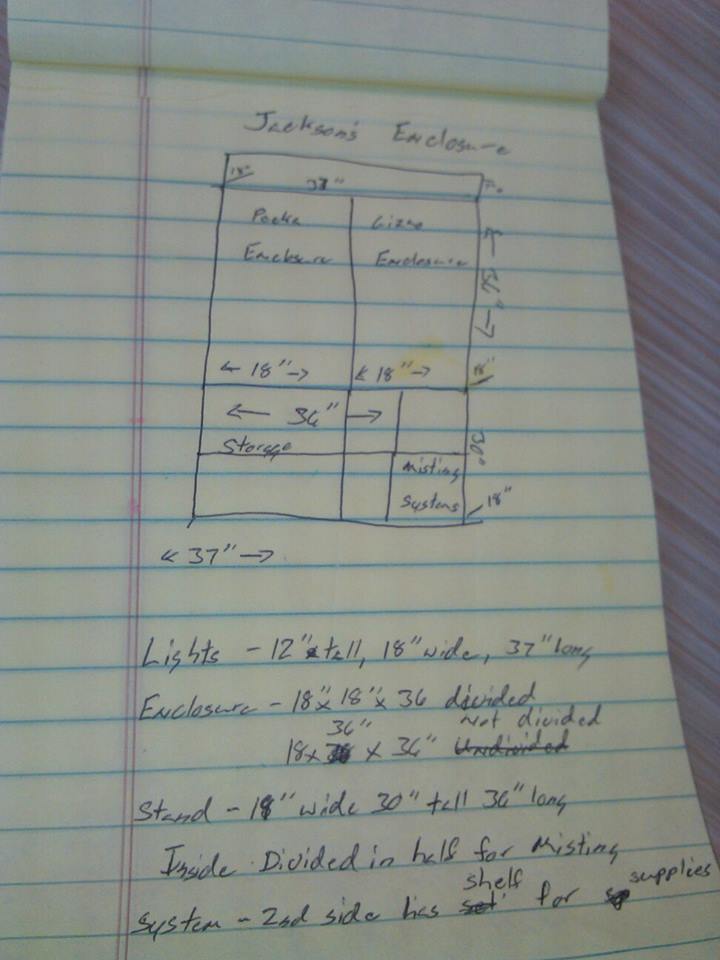 Jackson's Enclosure
18" 37"
Pocka Gizmo
Enclosure Enclosure
← 36" →
← 18" → ← 18" → 18"
← 36" → 30"
Storage
Misting
Systems 18"
← 37" →
Lights - 12" tall, 18" wide, 37" long
Enclosure - 18" x 18" x 36 divided
36" Not divided
18 x x 36" Undivided
Stand - 18" wide 30" tall 36" long
Inside Divided in half for Misting
shelf supplies
System - 2nd side has for